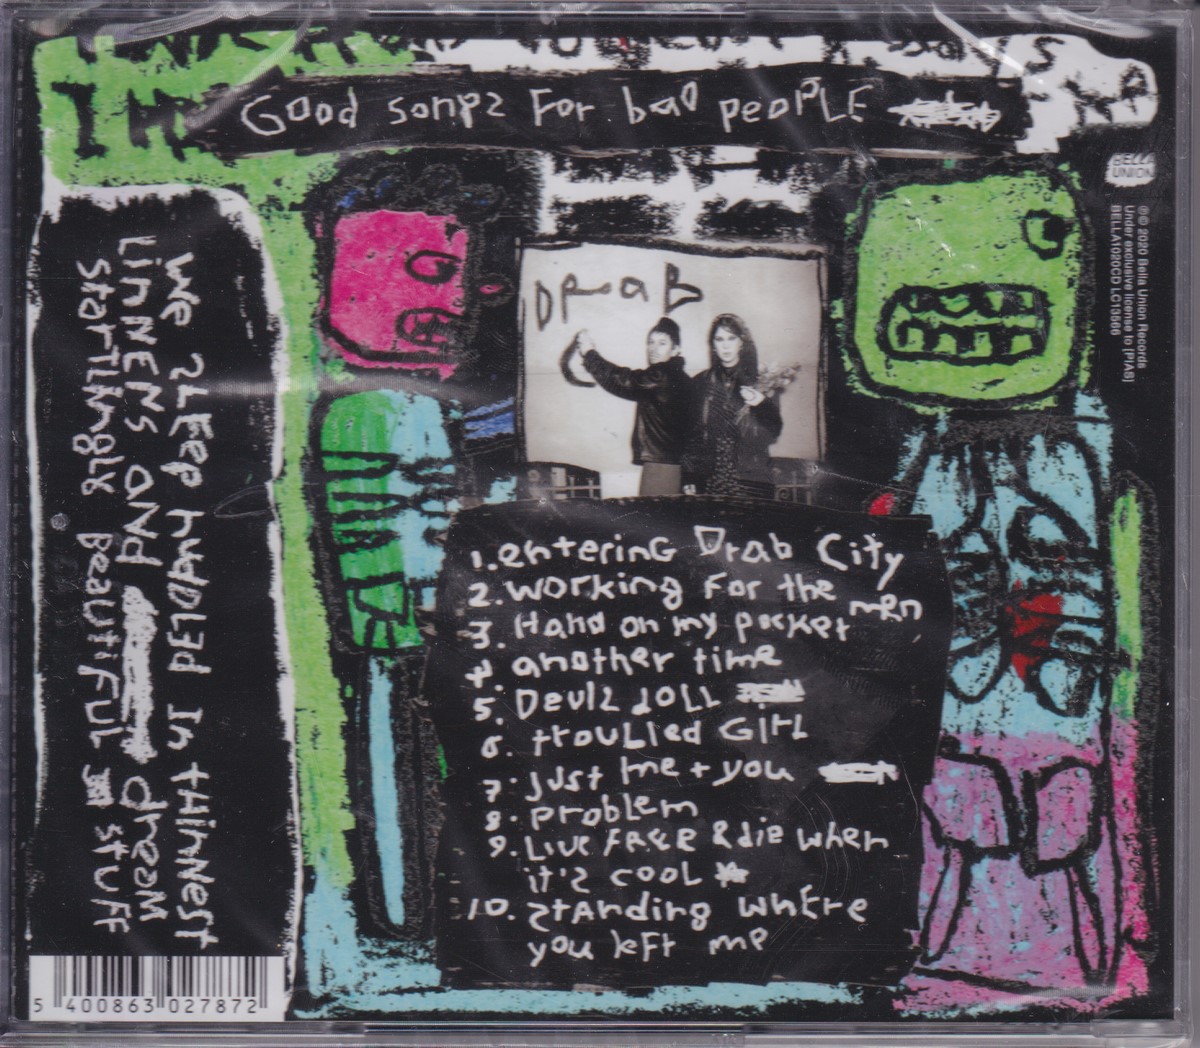 Good songs For bad peoPLE
DraB
1. entering Drab City
2. working For the men
3. Hand on my pocket
4 another time
5. Devils doLL
6. trouLled GirL
7. just me + you
8. problem
9. Live Free & die when
it's cool
10. standing where
you left me
we sleep huddled in thinnest
Linnens and dream
startlingly Beautiful stuff
BELLA
UNION
℗© 2020 Bella Union Records
Under exclusive license to [PIAS]
BELLA1020CD LC13566
5 400863 027872